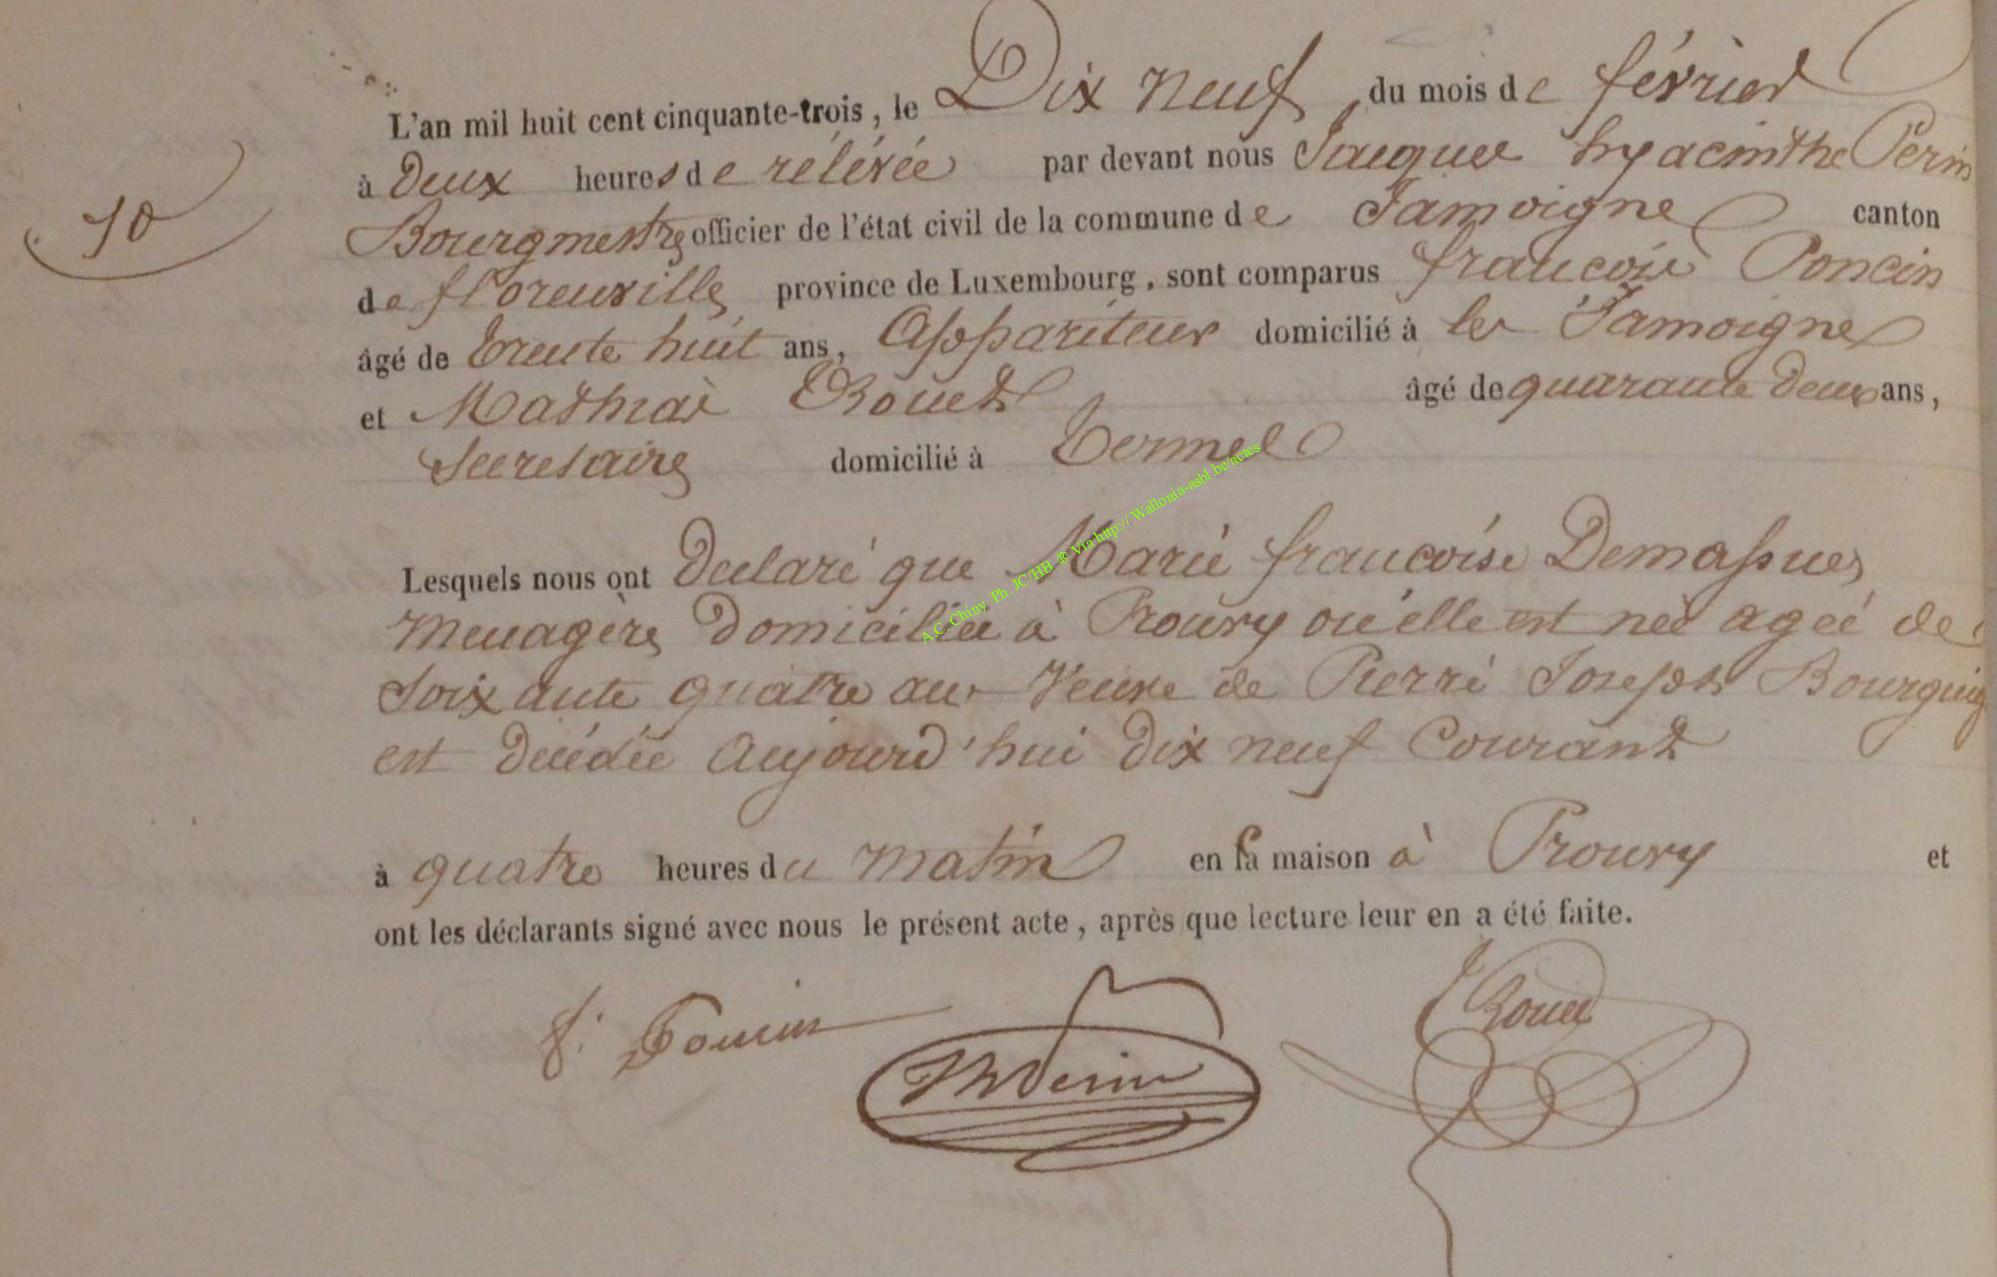 L'an mil huit cent cinquante-trois, le Dix neuf du mois de février
à deux heures de rélévée par devant nous Jacque hyacinthe Perin
10
Bourgmestre officier de l'état civil de la commune de Jamoigne canton
de florenville province de Luxembourg, sont comparus francois Poncin
âgé de trente huit ans, Appariteur domicilié à les Jamoigne
et Mathias Rouet âgé de quarante deux ans,
Secretaire domicilié à termes
A.C. Chiny Ph. JC/HB ® Via http://Wallonia-asbl.be/actes
Lesquels nous ont declaré que Marie francoise Demasu
menagère domiciliée à Prouvy ou elle est née ageé de
soixante quatre ans veuve de Pierre Joseph Bourguig
est decédée aujourd'hui dix neuf courant
à quatre heures du matin en sa maison à Prouvy et
ont les déclarants signé avec nous le présent acte, après que lecture leur en a été faite.
f. Poncin Perin Rouet